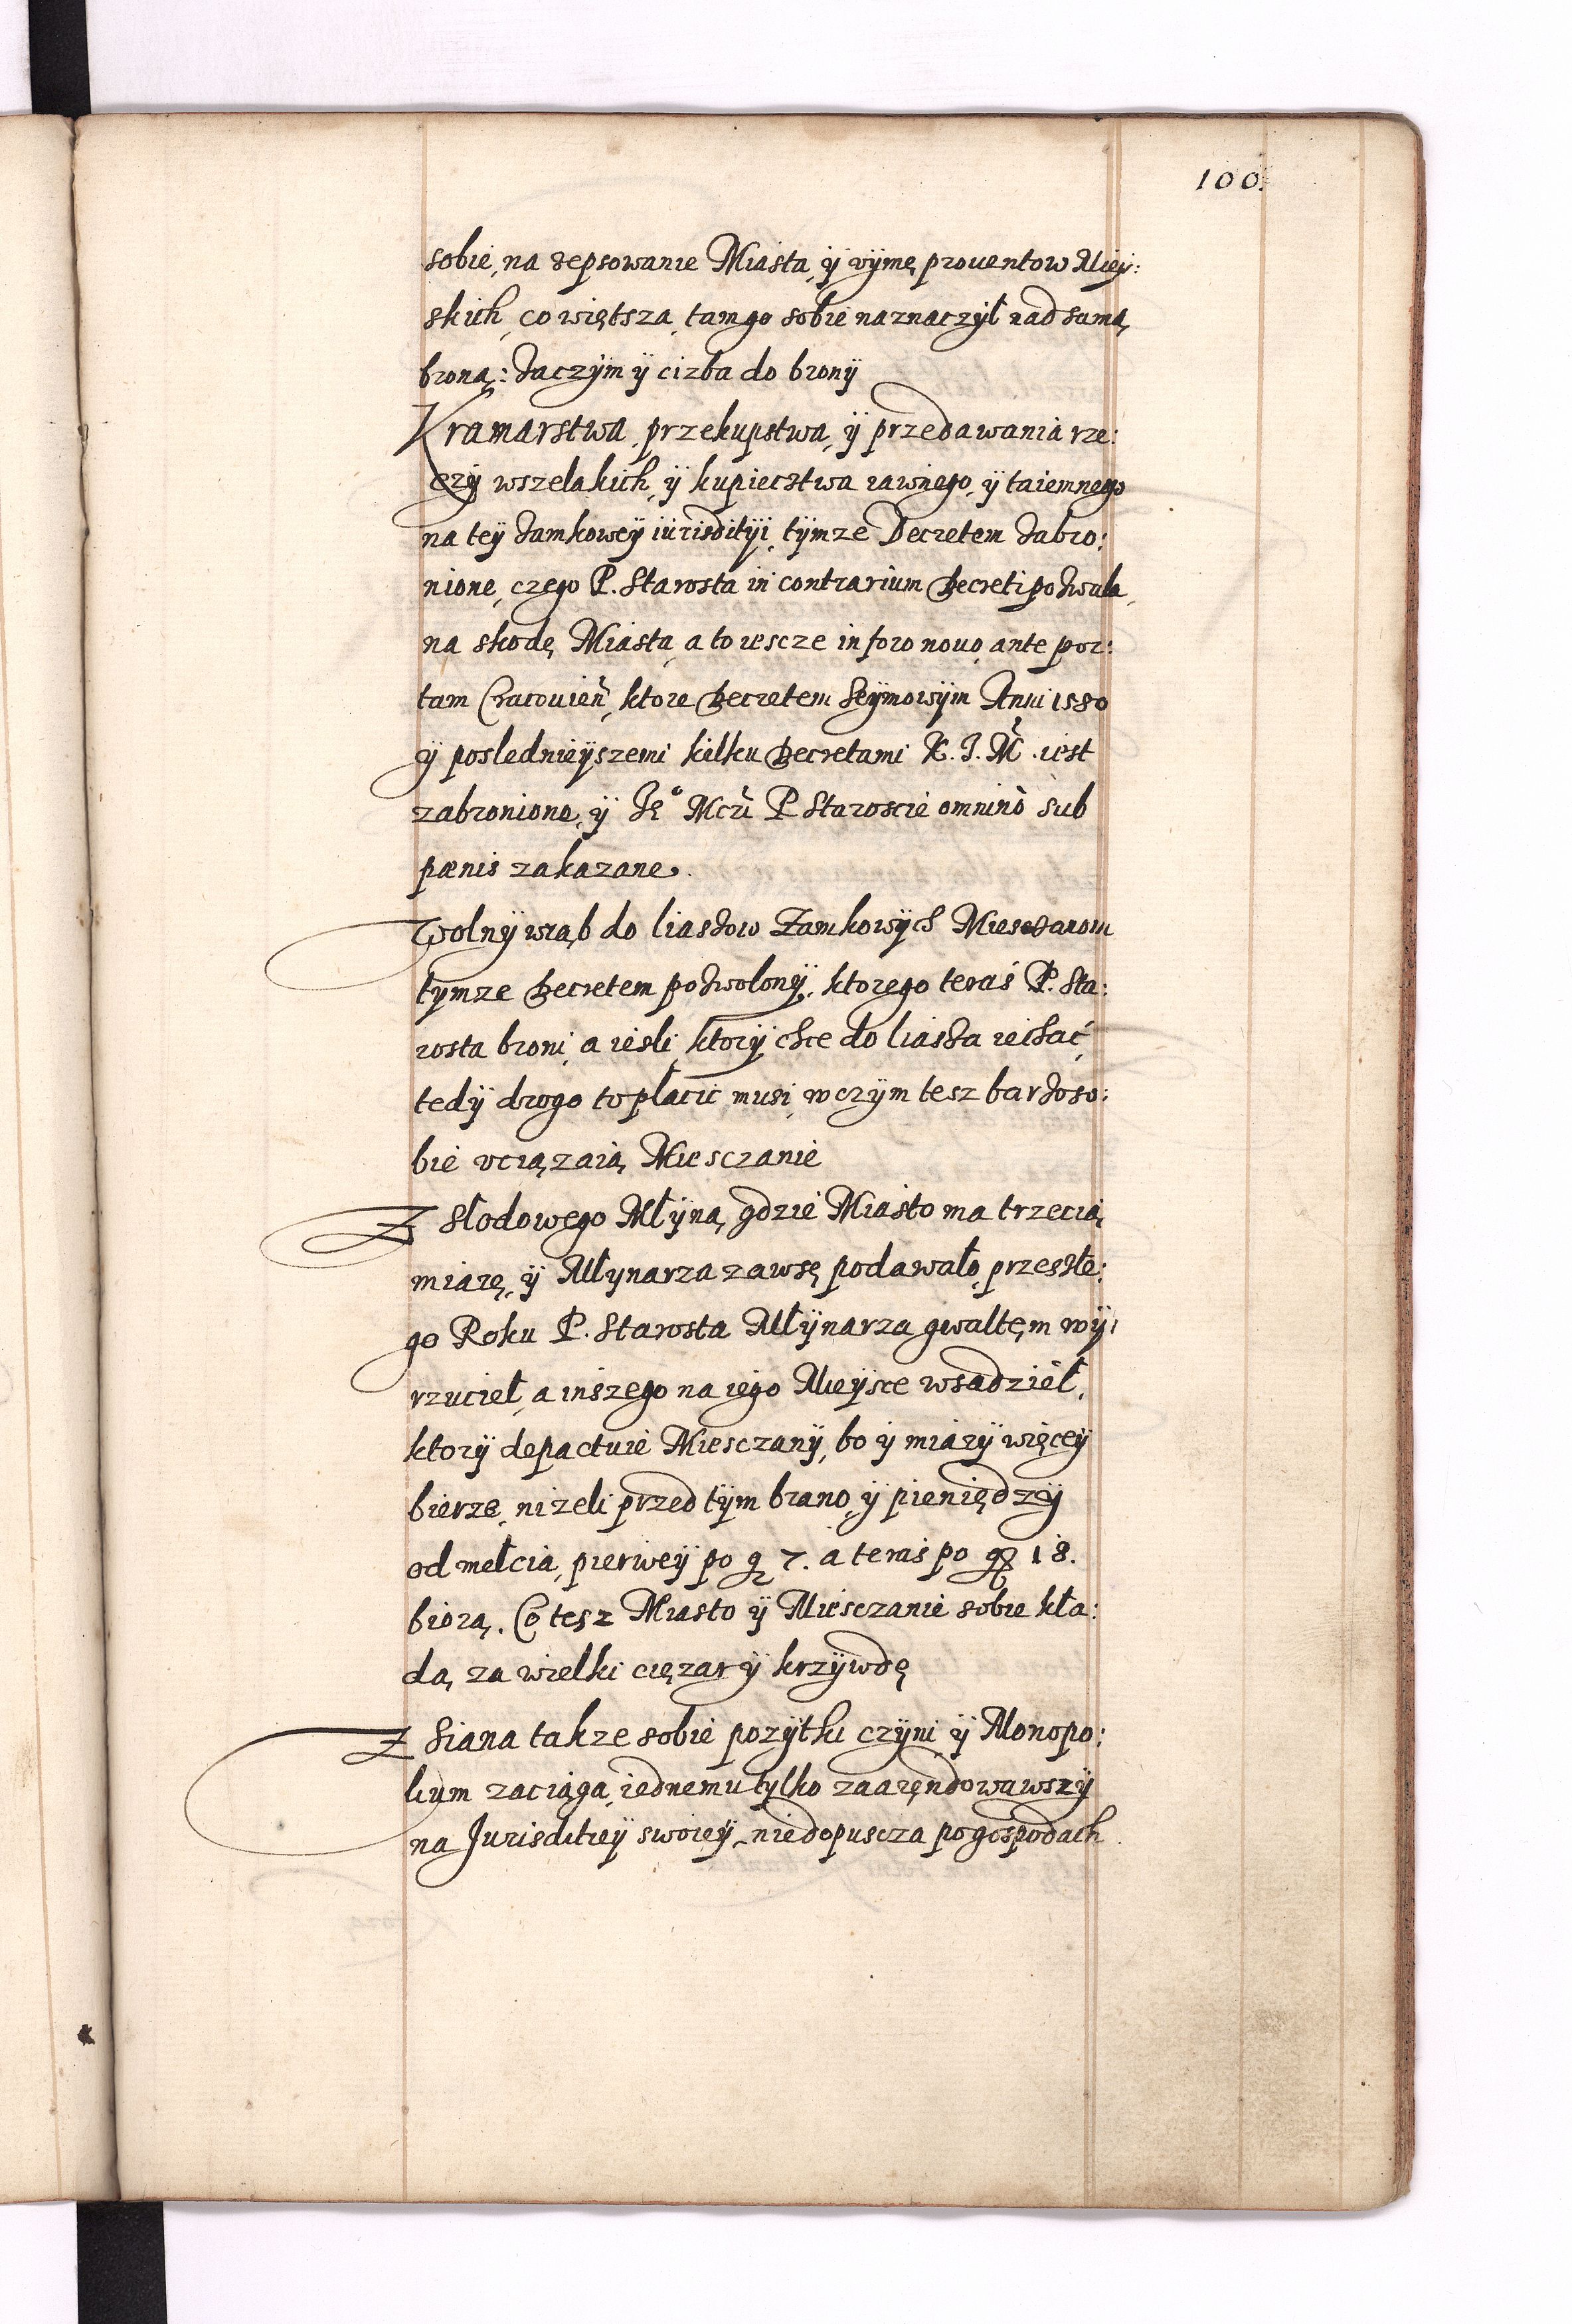 100.
sobie, na zepsowanie Miasta, ÿ vÿmę prouentow Mieÿ:
skich, co więtsza, tamgo sobie naznaczÿł nad samą
broną: zaczÿm ÿ cizba do bronÿ
Kramarstwa, przekupstwa, ÿ przedawania rze:
czÿ wszelakich, ÿ kupiecztwa iawnego, ÿ taiemnego
na teÿ zamkoweÿ iurisditÿi, tÿmze Decretem zabro:
nione, czego P. Starosta in contrarium Decreti pozwala,
na skodę Miasta, a to iescze in foro nouo, ante por:
tam Cracouień, ktore Decretem Seÿmowÿm Anni 1580
ÿ posledniejszemi kilku Decretami K. J. M. iest
zabronione, ÿ Je° Mci P Staroscie omninò sub
pænis zakazane.
Wolnÿ wrąb do liassow Zamkowÿch Miesczanom
tymze Decretem pozwolonÿ, ktorego teras P. Sta:
rosta broni, a iesli ktorÿ chce do liassa iechać,
tedÿ drogo to płacic musi, w czÿm tesz bardzo so:
bie vciązaią Miesczanie
Z Słodowego Młÿna, gdzie Miasto ma trzecią
miarę, ÿ Młynarza zawsę podawało, przeszłe:
go Roku P. Starosta Młÿnarza gwałtęm wÿ:
rzucieł, a inszego na iego Mieÿsce wsadzieł,
ktorÿ depactuie Miesczanÿ, bo ÿ miarÿ więceÿ
bierze, nizeli przed tÿm brano, ÿ pieniędzÿ
od melcia, pierweÿ po g 7. a teras po g 18.
biorą. Co tesz Miasto ÿ Miesczanie sobie kła:
dą, za wielki cięzar ÿ krzÿwdę
Z Siana takze sobie pozÿtki czÿni, ÿ Monopo:
lium zaciąga, iednemu tylko zaaręndowawszÿ
na Jurisditieÿ swoieÿ, niedopuscza po gospodach